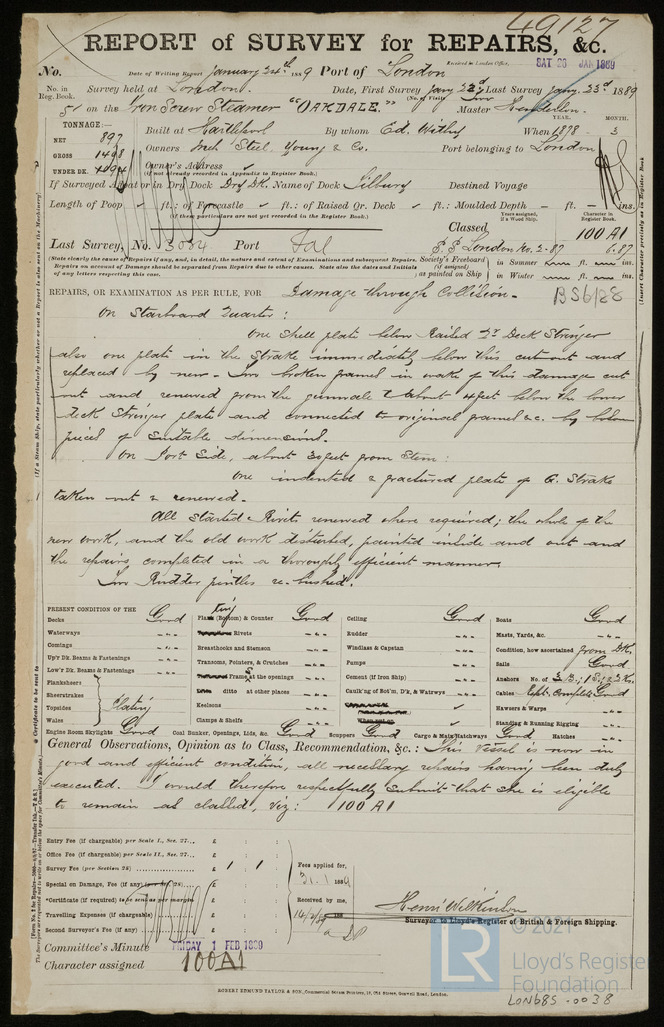 49127
REPORT of SURVEY for REPAIRS, &c.
Received in London Office,
SAT 26 JAN 1889
No. Date of Writing Report January 24th 1889 Port of London
No. in Reg. Book. Survey held at London. Date, First Survey Jany 22nd Last Survey Jany. 23rd 1889
(No. of Visits Two)
51 on the Iron Screw Steamer "OAKDALE." Master Henderson.
TONNAGE:— YEAR. MONTH.
NET 897 Built at Hartlepool By whom Ed. Withy When 1878 - 3
GROSS 1498 Owners Steel Young & Co. Port belonging to London
UNDER DK. Owner's Address
(if not already recorded in Appendix to Register Book.)
If Surveyed Afloat or in Dry Dock Dry Dk. Name of Dock Tilbury Destined Voyage
Length of Poop ft.: of Forecastle ft.: of Raised Qr. Deck ft.: Moulded Depth ft. ins.
(If these particulars are not yet recorded in the Register Book.)
Years assigned, if a Wood Ship. Character in Register Book.
Classed 100 A1
Last Survey, No. 3084 Port Gal S.S London No. 2-87 6.87
(State clearly the cause of Repairs, if any, and, in detail, the nature and extent of Examinations and subsequent Repairs.
Repairs on account of Damage should be separated from Repairs due to other causes. State also the dates and Initials
of any letters respecting this case.
Society's Freeboard (if assigned) as painted on Ship
in Summer ft. ins.
in Winter ft. ins.
REPAIRS, OR EXAMINATION AS PER RULE, FOR Damage through Collision.
BS6/88
On Starboard Quarter:
One shell plate below Raised Qr Deck Stringer
also one plate in the Strake immediately below this cut out and
replaced by new. Two broken frames in wake of this damage cut
out and renewed from the gunwale to about 4 feet below the lower
deck Stringer plate and connected to original frames &c. by
pieces of suitable dimensions.
On Port Side, about 30 feet from Stem:
One indented & fractured plate of G. Strake
taken out & renewed.
All started Rivets renewed where required; the whole of the
new work, and the old work disturbed, painted inside and out and
the repairs completed in a thoroughly efficient manner.
Two Rudder pintles re-bushed.
PRESENT CONDITION OF THE
Decks Good
Waterways "
Comings "
Up'r Dk. Beams & Fastenings "
Low'r Dk. Beams & Fastenings "
Planksheers
Sheerstrakes
Topsides
Wales
Plating
Plating (Bottom) & Counter Good
Rivets "
Breasthooks and Stemson "
Transoms, Pointers, & Crutches "
Frames at the openings "
ditto at other places "
Keelsons "
Clamps & Shelfs "
Ceiling Good
Rudder "
Windlass & Capstan "
Pumps "
Cement (if Iron Ship) "
Caulk'ng of Bot'm, D'k, & Watrways "
Boats Good
Masts, Yards, &c. "
Condition, how ascertained from Dk.
Sails Good
Anchors No. of 3 B; 1 S; 2 Ks.
Cables Rept. complete Good
Hawsers & Warps "
Standing & Running Rigging "
Engine Room Skylights Good Coal Bunker, Openings, Lids, &c. Good Scuppers Good Cargo & Main Hatchways Good Hatches "
General Observations, Opinion as to Class, Recommendation, &c.: This vessel is now in
good and efficient condition, all necessary repairs having been duly
executed. I would therefore respectfully submit that she is eligible
to remain as classed, viz: 100 A1
Entry Fee (if chargeable) per Scale I., Sec. 27... £
Office Fee (if chargeable) per Scale II., Sec. 27... £
Survey Fee (per Section 28) £ 1 : 1
Special on Damage, Fee (if any) (per Sec. 28) £
*Certificate (if required) to be sent as per margin
Travelling Expenses (if chargeable) £
Second Surveyor's Fee (if any) £
Fees applied for,
31.1 1889
Received by me,
14/2/89
Henri Wilkinson
Surveyor to Lloyd's Register of British & Foreign Shipping.
Committee's Minute FRIDAY 1 FEB 1889
Character assigned 100A1
ROBERT EDMUND TAYLOR & SON, Commercial Steam Printers, 19, Old Street, Goswell Road, London.
© 2021
LR
Lloyd's Register
Foundation
LON685-0038